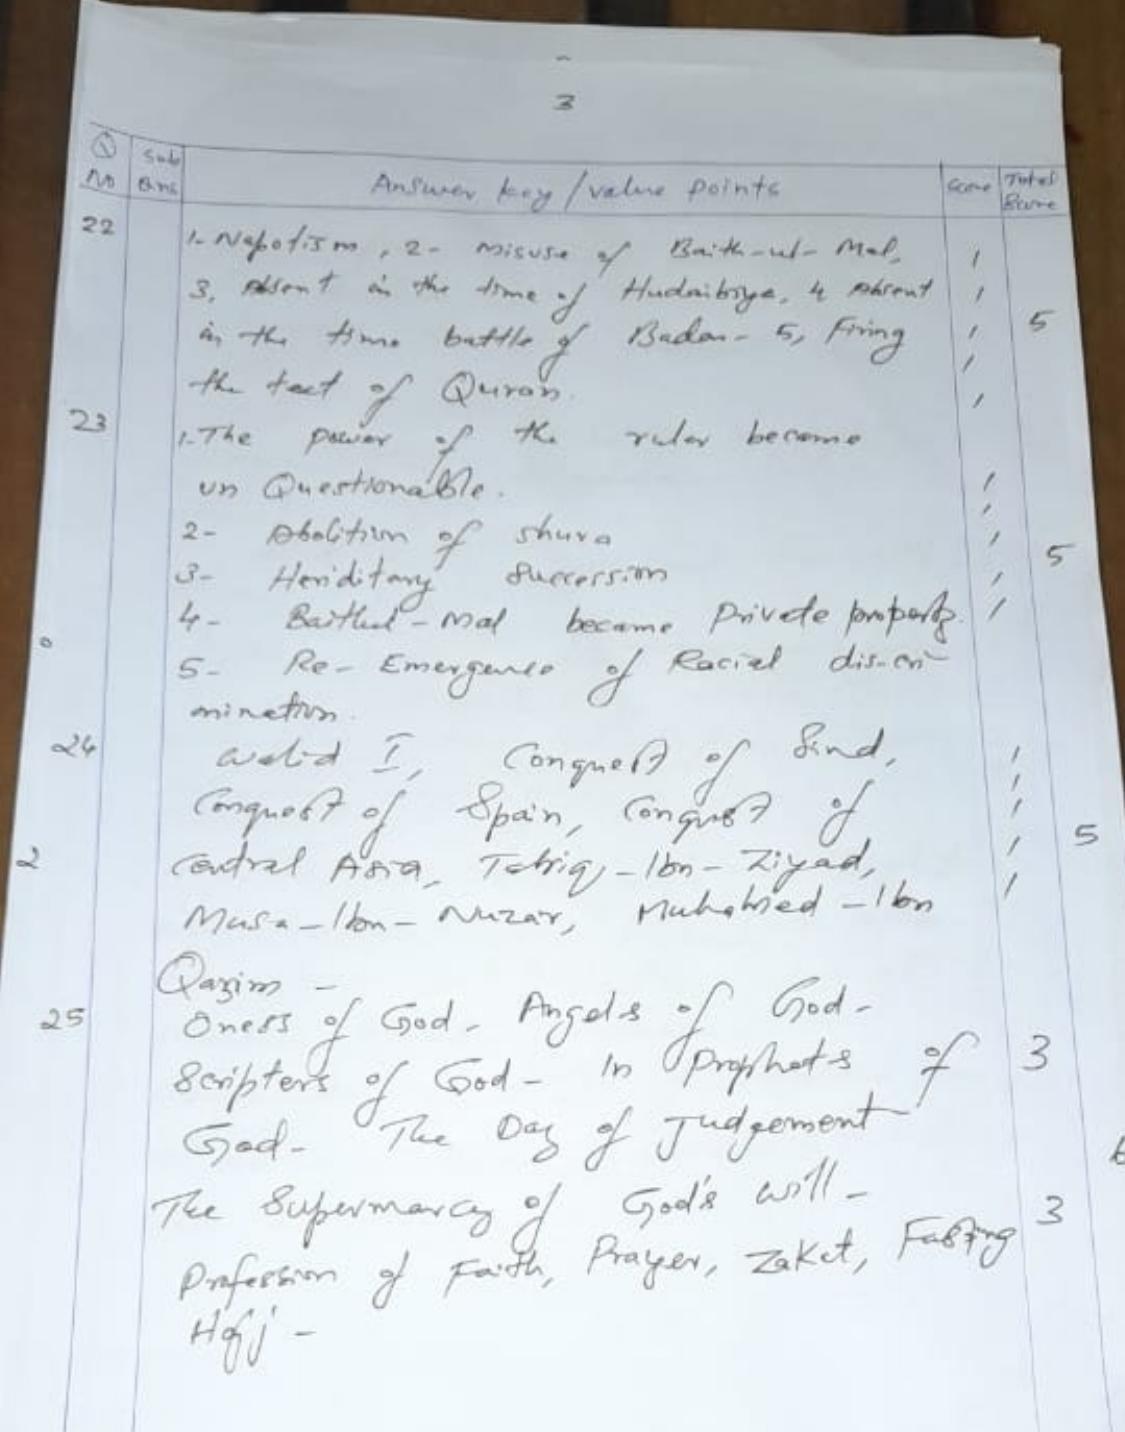 3
Q No Sub Qns Answer key / value points Score Total Score
22 1- Napotism, 2- Misuse of Baith-ul-Mal,
3, Absent in the time of Hudaibiya, 4 Absent
in the time battle of Badar- 5, Firing 5
the text of Quran.
23 1. The power of the ruler become
un Questionable.
2- Abolition of shura
3- Heriditary Succession 5
4- Baithul-Mal became Private property.
5- Re-Emergence of Racial dis-cri-
mination.
24 Walid I, Conquest of Sind,
Conquest of Spain, Conquest of 5
2 Central Asia, Tahriq-Ibn-Ziyad,
Musa-Ibn-Nuzar, Muhammed-Ibn
Qazim -
25 Oness of God- Angels of God-
Scripters of God- In Prophets of 3
God- The Day of Judgement
The Supermarcy of God's will- 3
Profession of Faith, Prayer, Zakat, Fasting
Hajj -